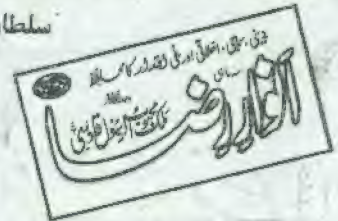 سلطا
دینی، سماجی، اخلاقی اور ملی اقدار کا محافظ
سہ ماہی
انوار رضا
ملک محبوب الرسول قادری